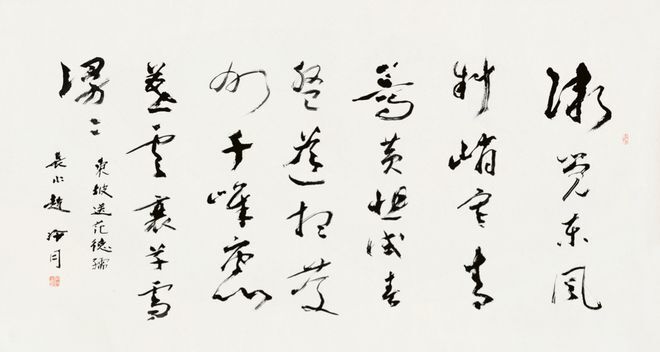 漸覺東風
料峭寒青
蒿黄韭試春
盤遥想慶
州千嶂裏
暮雲衰草雪
漫々
東坡送范德孺
趙